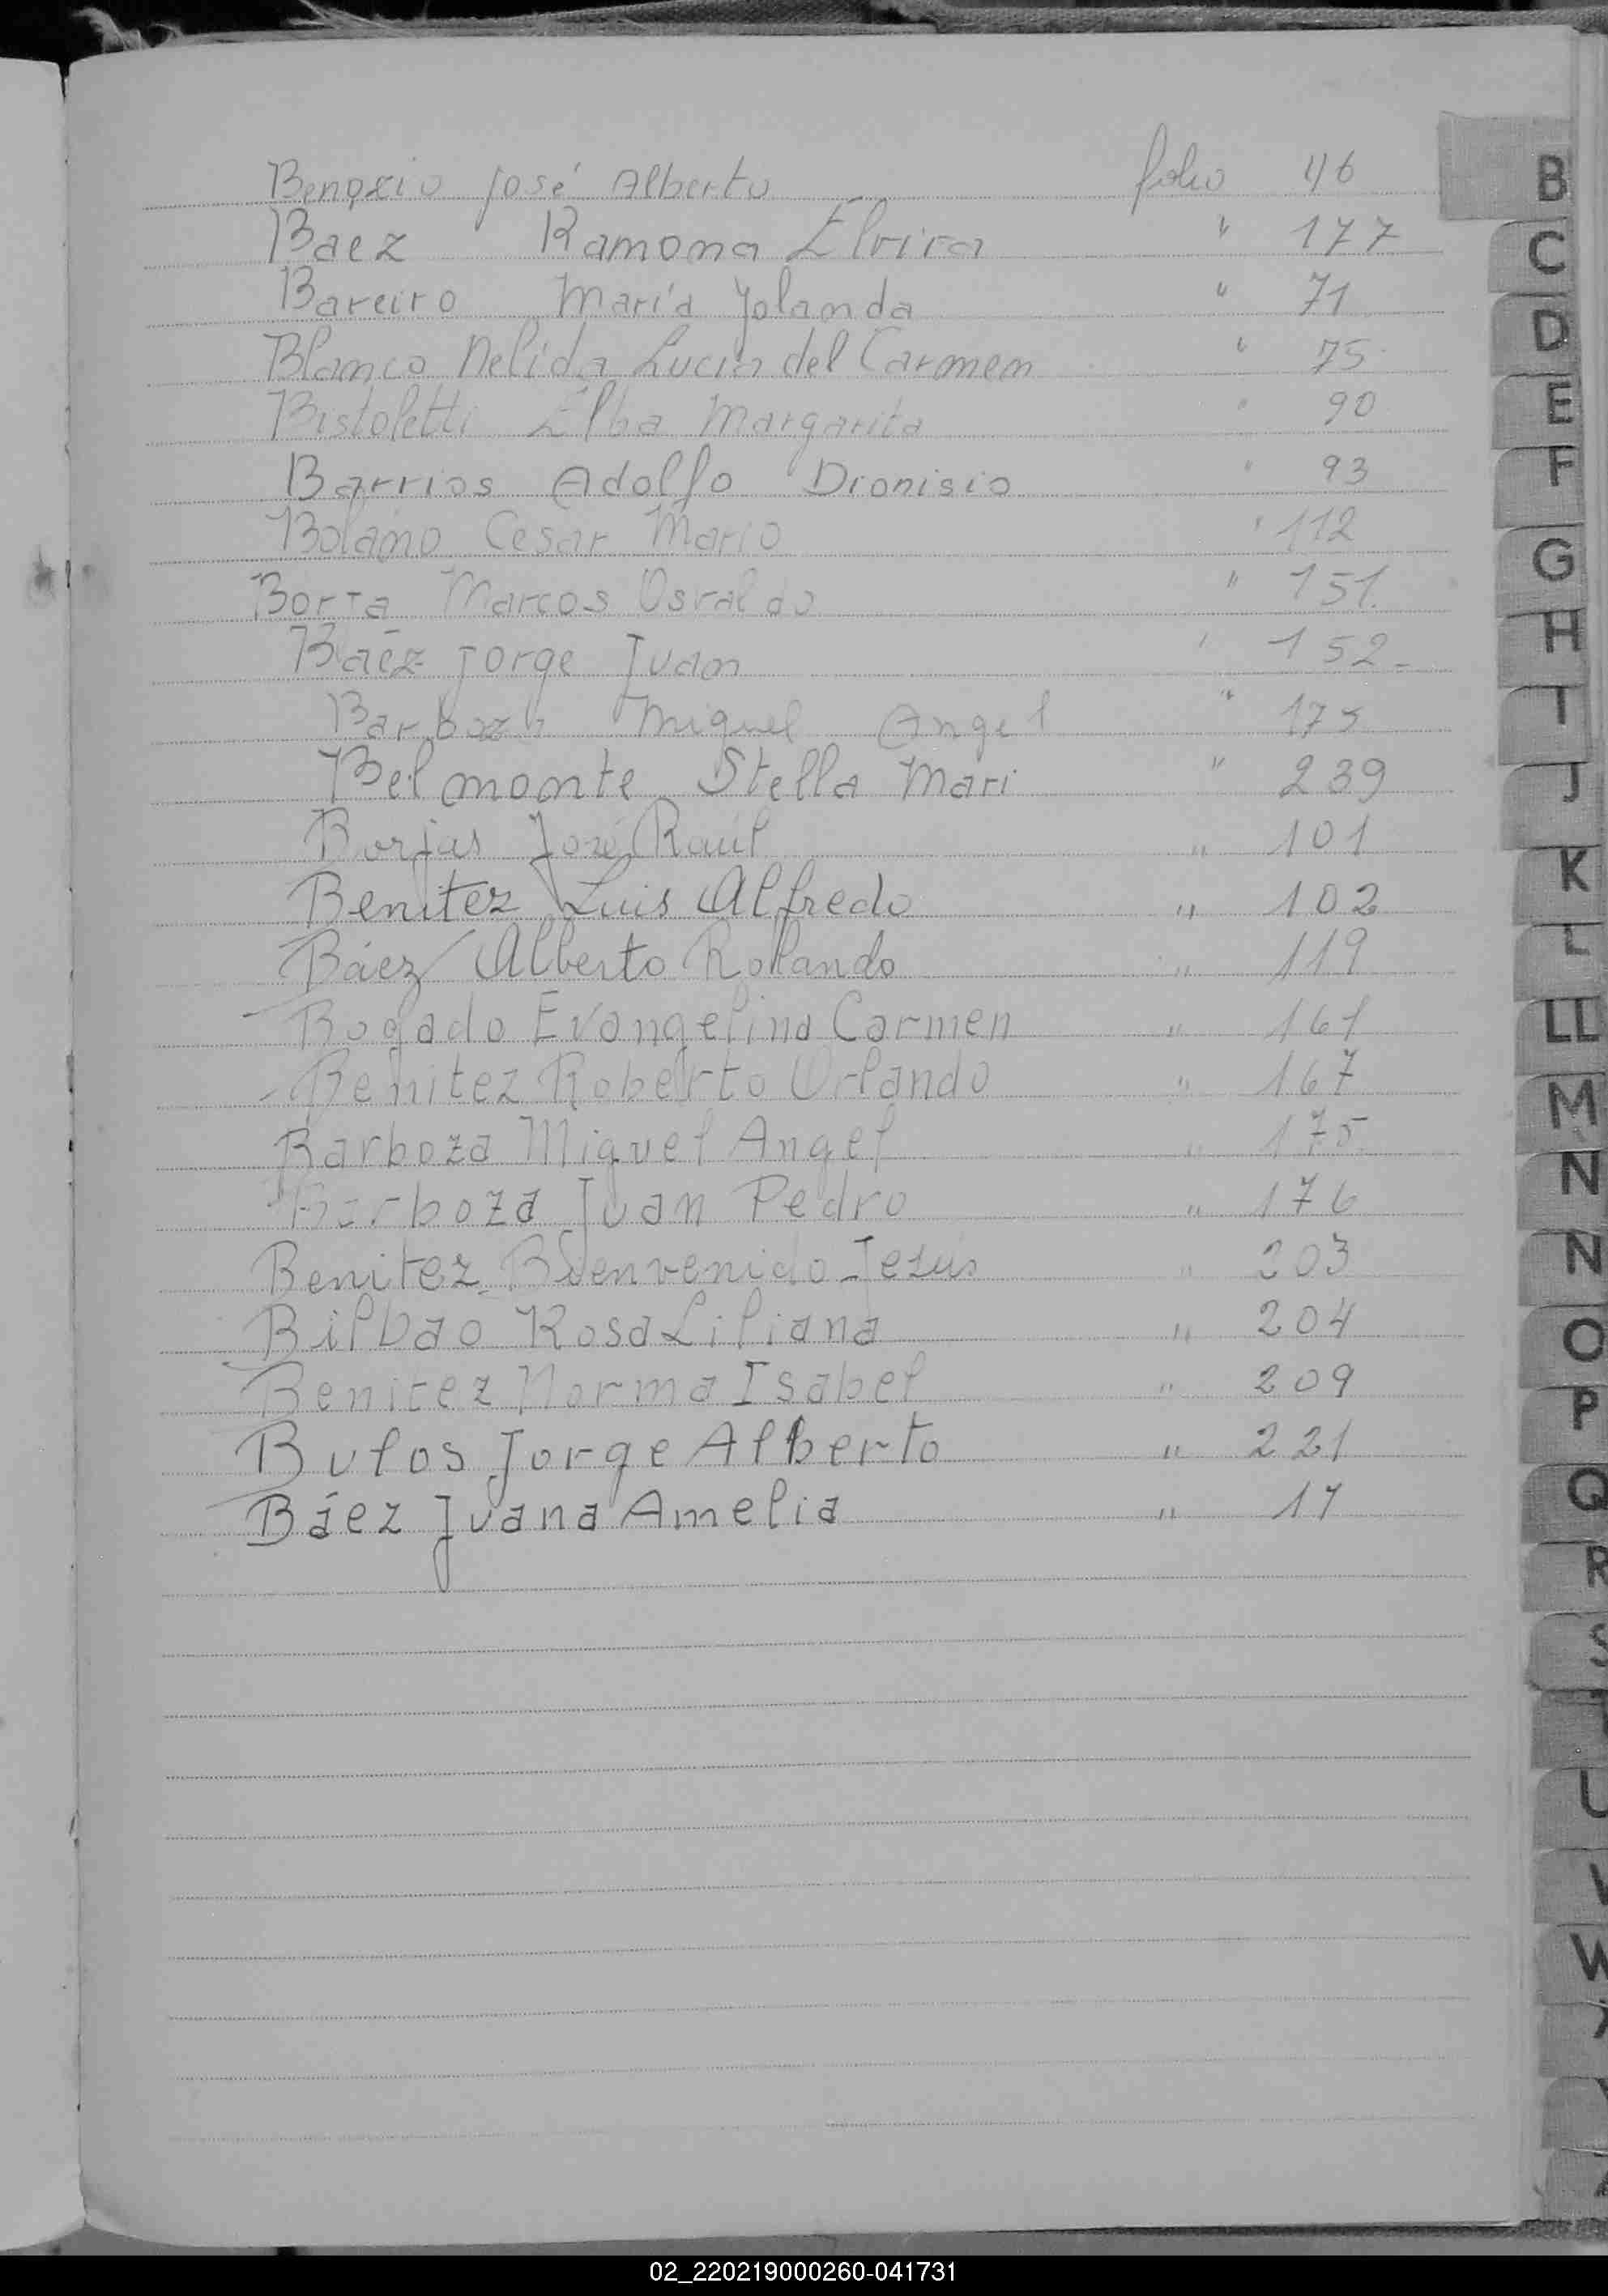 José Alberto folio 46
Baez Ramona Elvira " 177
Bareiro María Yolanda " 71
Blanco Nelida Lucia del Carmen " 75
Bistoletti Elba Margarita " 90
Barrios Adolfo Dionisio " 93
Bolaño Cesar Mario " 112
Borta Marcos Osvaldo " 151.
Báez Jorge Juan " 152-
Barboza Miguel Angel " 175
Belmonte Stella Mari " 239
Borjas José Raúl " 101
Benitez Luis Alfredo " 102
Báez Alberto Rolando " 119
Bogado Evangelina Carmen " 161
Benitez Roberto Orlando " 167
Barboza Miguel Angel " 175
Barboza Juan Pedro " 176
Benitez Bienvenido Jesús " 203
Bilbao Rosa Liliana " 204
Benitez Norma Isabel " 209
Bulos Jorge Alberto " 221
Báez Juana Amelia " 17
B
C
D
E
F
G
H
I
J
K
L
LL
M
N
N
O
P
Q
R
S
U
V
W
02_220219000260-041731